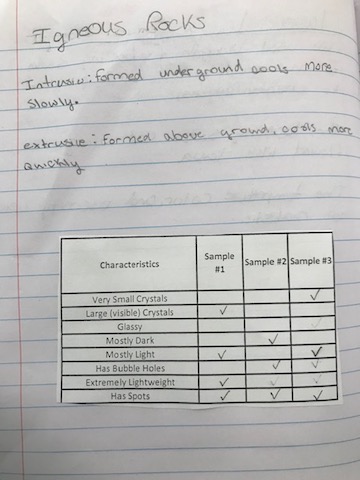 Igneous Rocks
Intrusive: formed underground cools more
slowly.
extrusive: formed above ground, cools more
quickly
Characteristics Sample #1 Sample #2 Sample #3
Very Small Crystals ✓
Large (visible) Crystals ✓
Glassy
Mostly Dark ✓
Mostly Light ✓ ✓
Has Bubble Holes ✓ ✓
Extremely Lightweight ✓ ✓ ✓
Has Spots ✓ ✓ ✓